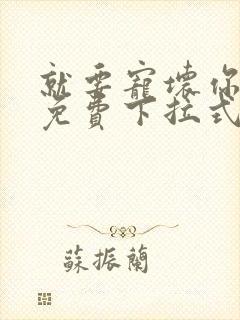 就要寵壞你
免費下拉式
蘇振蘭